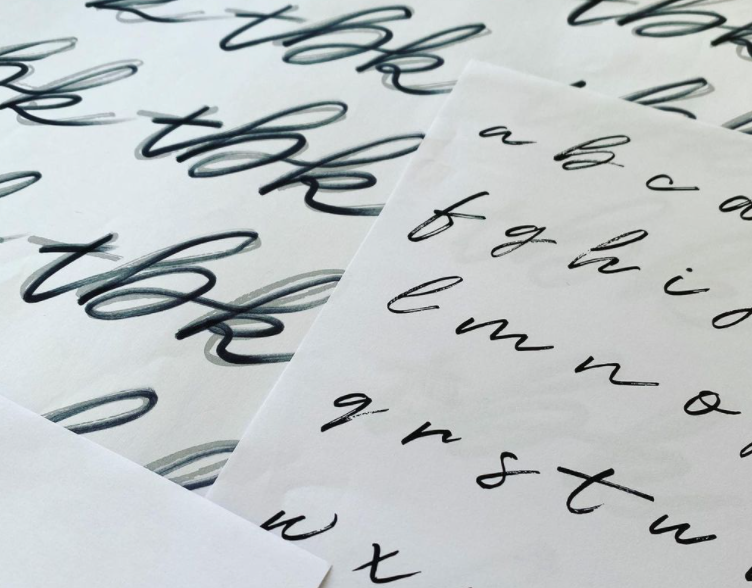 tbk
tbk
tbk
tbk
a b c d
f g h i j
l m n o
q r s t u
w x